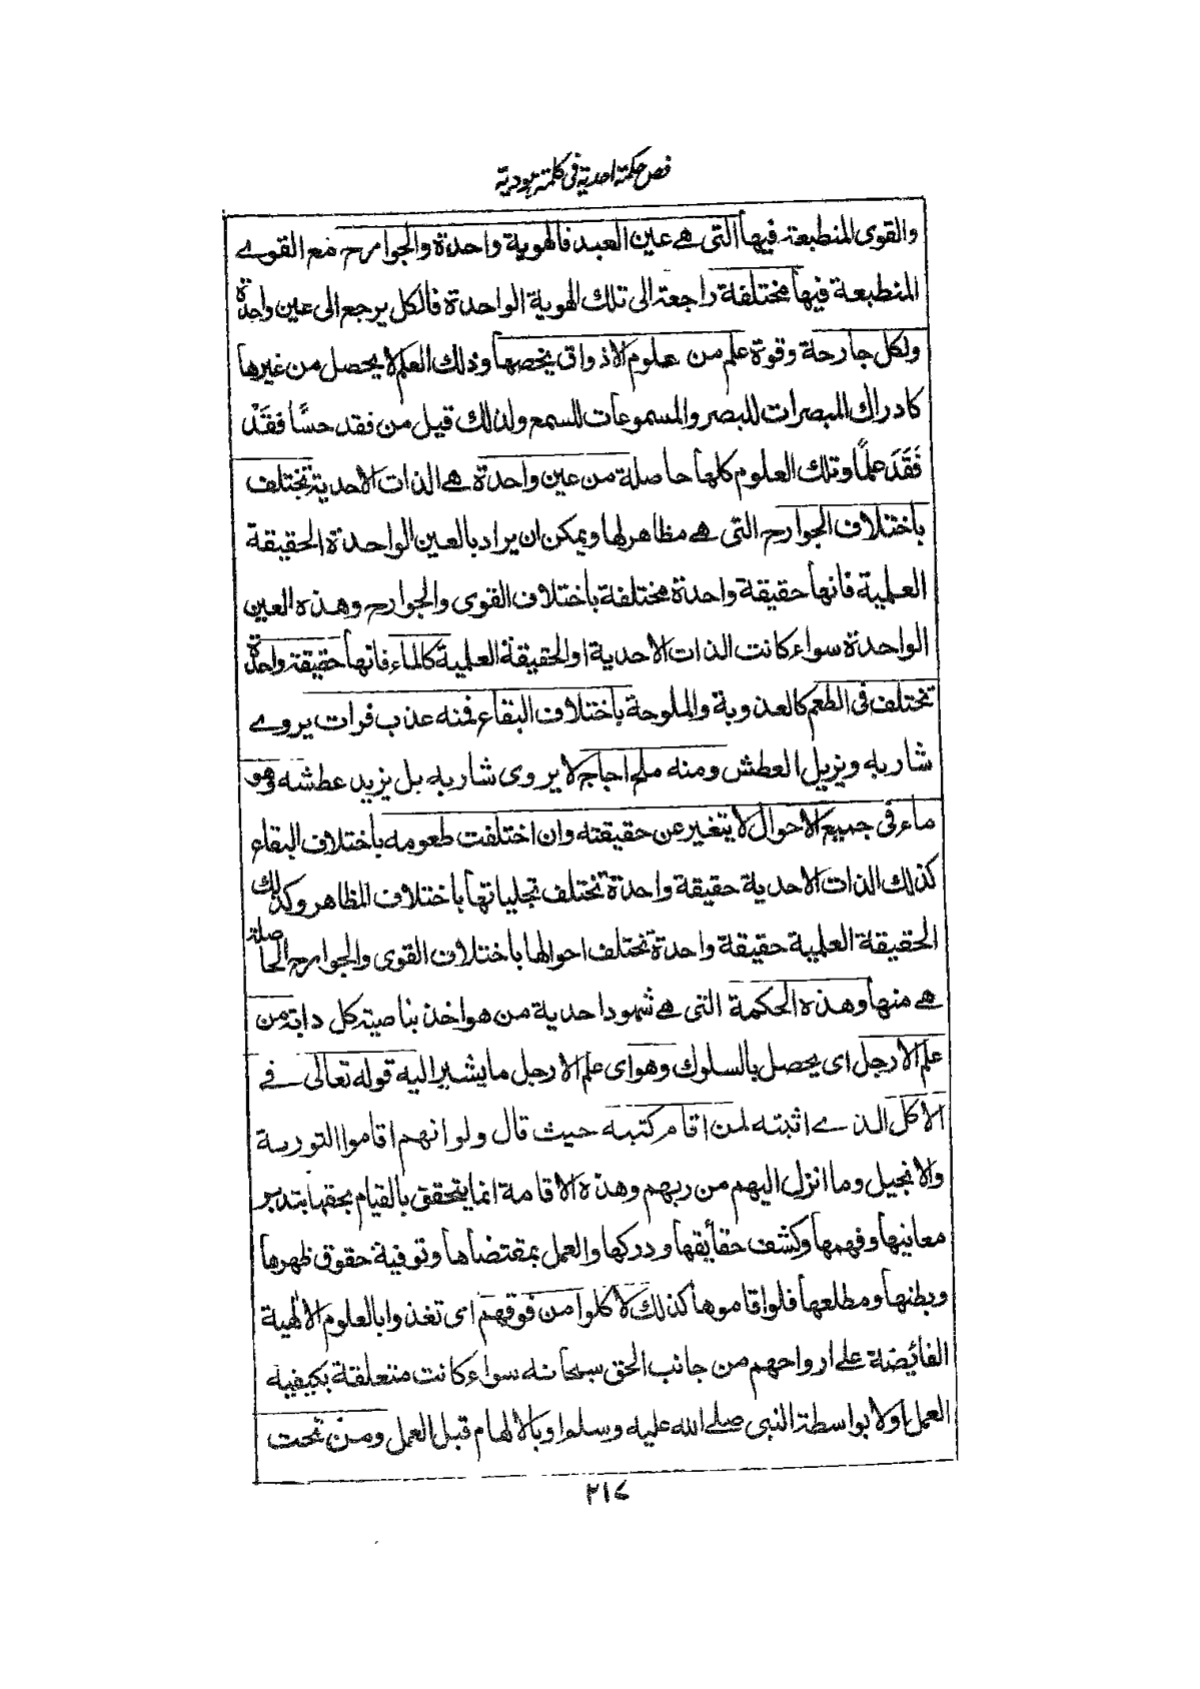 فص حكمة احدية فى كلمة هودية
والقوى المنطبعة فيها التى هے عين العبد فالهوية واحدة والجوارح مع القوے
المنطبعة فيها مختلفة راجعة الى تلك الهوية الواحدة فالكل يرجع الى عين واحدة
ولكل جارحة وقوة علم من علوم الاذواق يخصها وذلك العلم لا يحصل من غيرها
كادراك المبصرات للبصر والمسموعات للسمع ولذلك قيل من فقد حسًّا فقَدْ
فَقَدَ علمًا وتلك العلوم كلها حاصلة من عين واحدة هے الذات الاحدية تختلف
باختلاف الجوارح التى هے مظاهرلها ويمكن ان يراد بالعين الواحدة الحقيقة
العلمية فانها حقيقة واحدة مختلفة باختلاف القوى والجوارح وهذه العين
الواحدة سواء كانت الذات الاحدية او الحقيقة العلمية كالماء فانها حقيقة واحدة
تختلف فى الطعم كالعذوبة والملوحة باختلاف البقاع فمنه عذب فرات يروے
شاربه ويزيل العطش ومنه ملح اجاج لا يروى شاربه بل يزيد عطشه وهو
ماء فى جميع الاحوال لا يتغير عن حقيقته وان اختلفت طعومه باختلاف البقاع
كذلك الذات الاحدية حقيقة واحدة تختلف تجلياتها باختلاف المظاهر وكذلك
الحقيقة العلمية حقيقة واحدة تختلف احوالها باختلاف القوى والجوارح الحاصلة
هے منها وهذه الحكمة التى هے شهود احدية من هو اخذ بناصية كل دابة من
علم الارجل اى يحصل بالسلوك وهو اى علم الارجل ما يشير اليه قوله تعالى فے
الاكل الذے اثبته لمن اقام كتبه حيث قال ولو انهم اقاموا التورىة
والانجيل وما انزل اليهم من ربهم وهذه الاقامة انما يتحقق بالقيام بحقها بتدبر
معانيها وفهمها وكشف حقائقها ودركها والعمل بمقتضاها وتوفية حقوق ظهرها
وبطنها ومطلعها فلو اقاموها كذلك لاكلوا من فوقهم اى تغذوا بالعلوم الالٰهية
الفائضة علے ارواحهم من جانب الحق سبحانه سواء كانت متعلقة بكيفية
العمل اولا بواسطة النبى صلے الله عليه وسلم او بالالهام قبل العمل ومن تحت
٢١٤